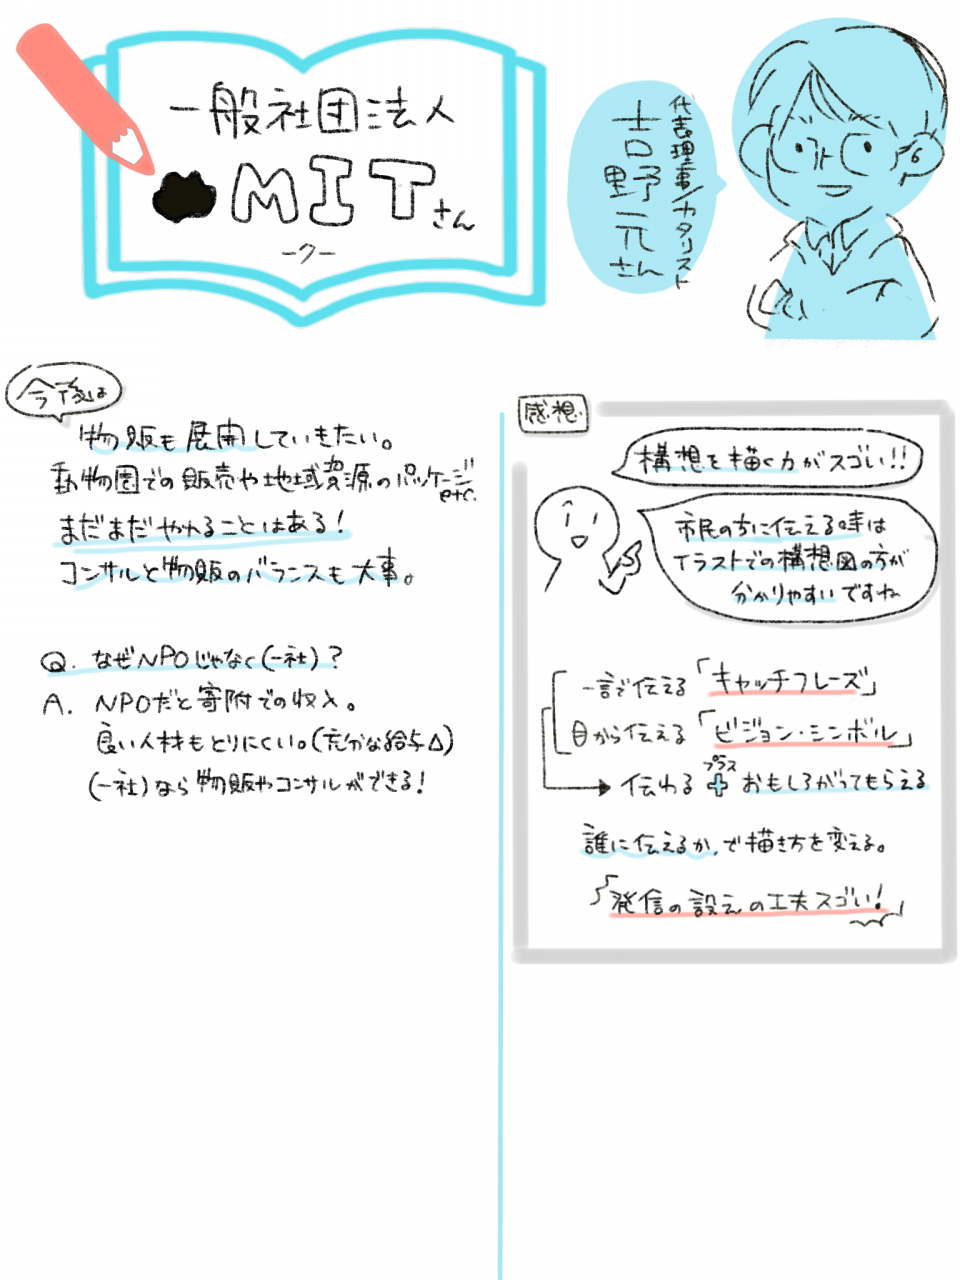 一般社団法人
MITさん
-7-
代表理事/カタリスト
吉野元さん
今後は
物販も展開していきたい。
動物園での販売や地域資源のパッケージ
etc.
まだまだやれることはある!
コンサルと物販のバランスも大事。
Q. なぜNPOじゃなく(一社)?
A. NPOだと寄附での収入。
良い人材もとりにくい。(充分な給与△)
(一社)なら物販やコンサルができる!
感想
構想を描く力がスゴい!!
市民の方に伝える時は
イラストでの構想図の方が
分かりやすいですね
一言で伝える「キャッチフレーズ」
目から伝える「ビジョン・シンボル」
プラス
伝わる+おもしろがってもらえる
誰に伝えるか、で描き方を変える。
発信の設え、の工夫スゴい!